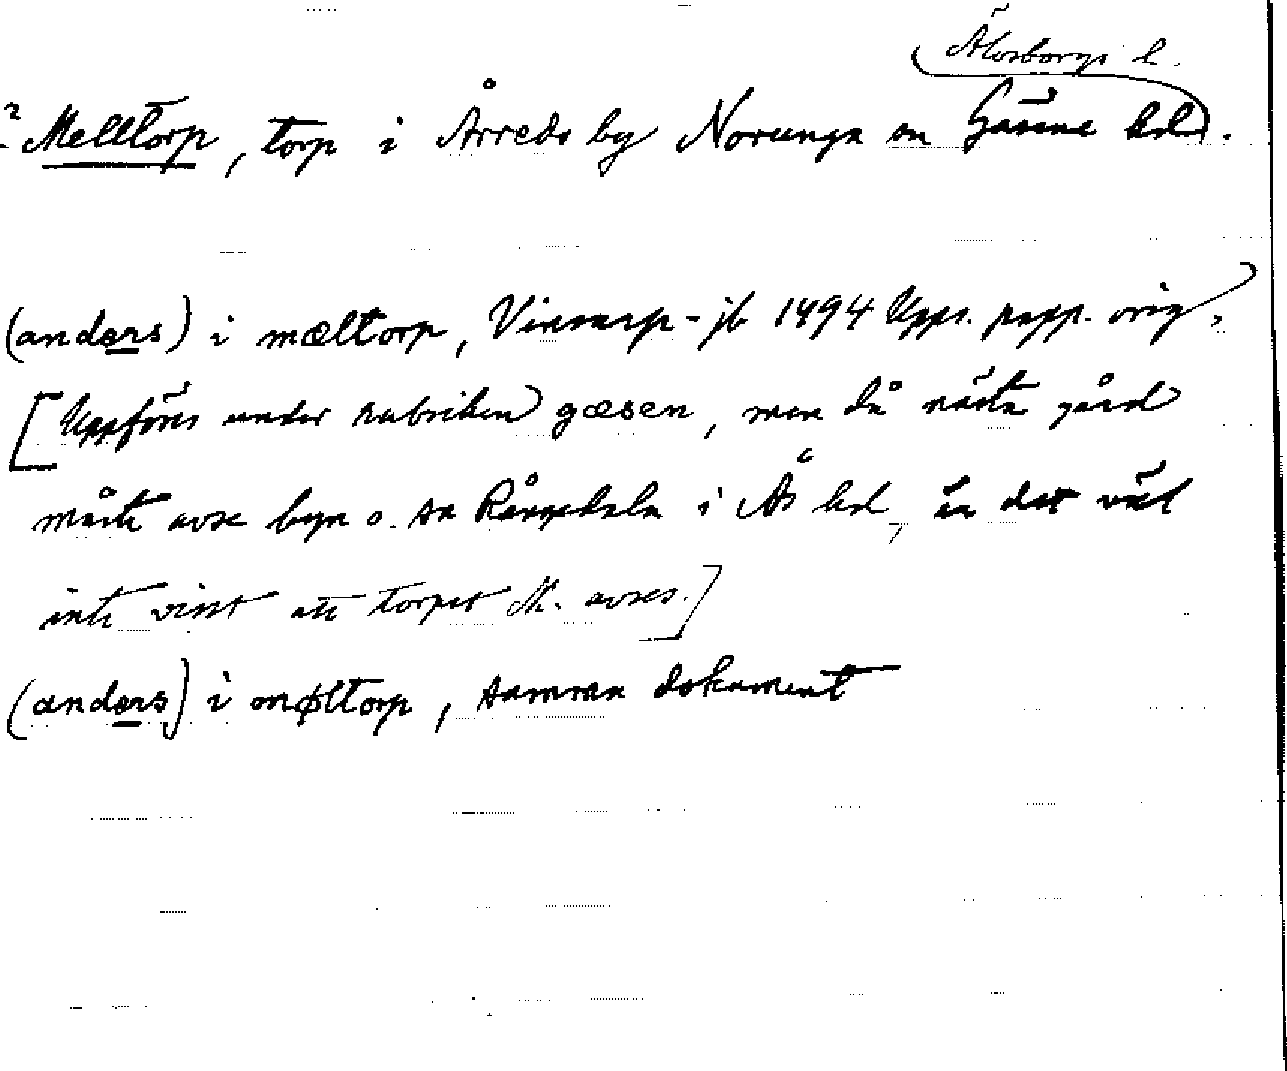 Älvsborgs l.
? Melltorp, torp i Årredo by Norunga sn Gäsene hd.
(anders) i mæltorp, Vinsarp-jb 1494 Upps. papp. orig,
[Uppförs under rubriken gæsen, men då nästa gård
måste avse byn o. sn Rångedala i Ås hd, är det väl
inte visst att torpet M. avses.]
(anders) i møltorp, samma dokument